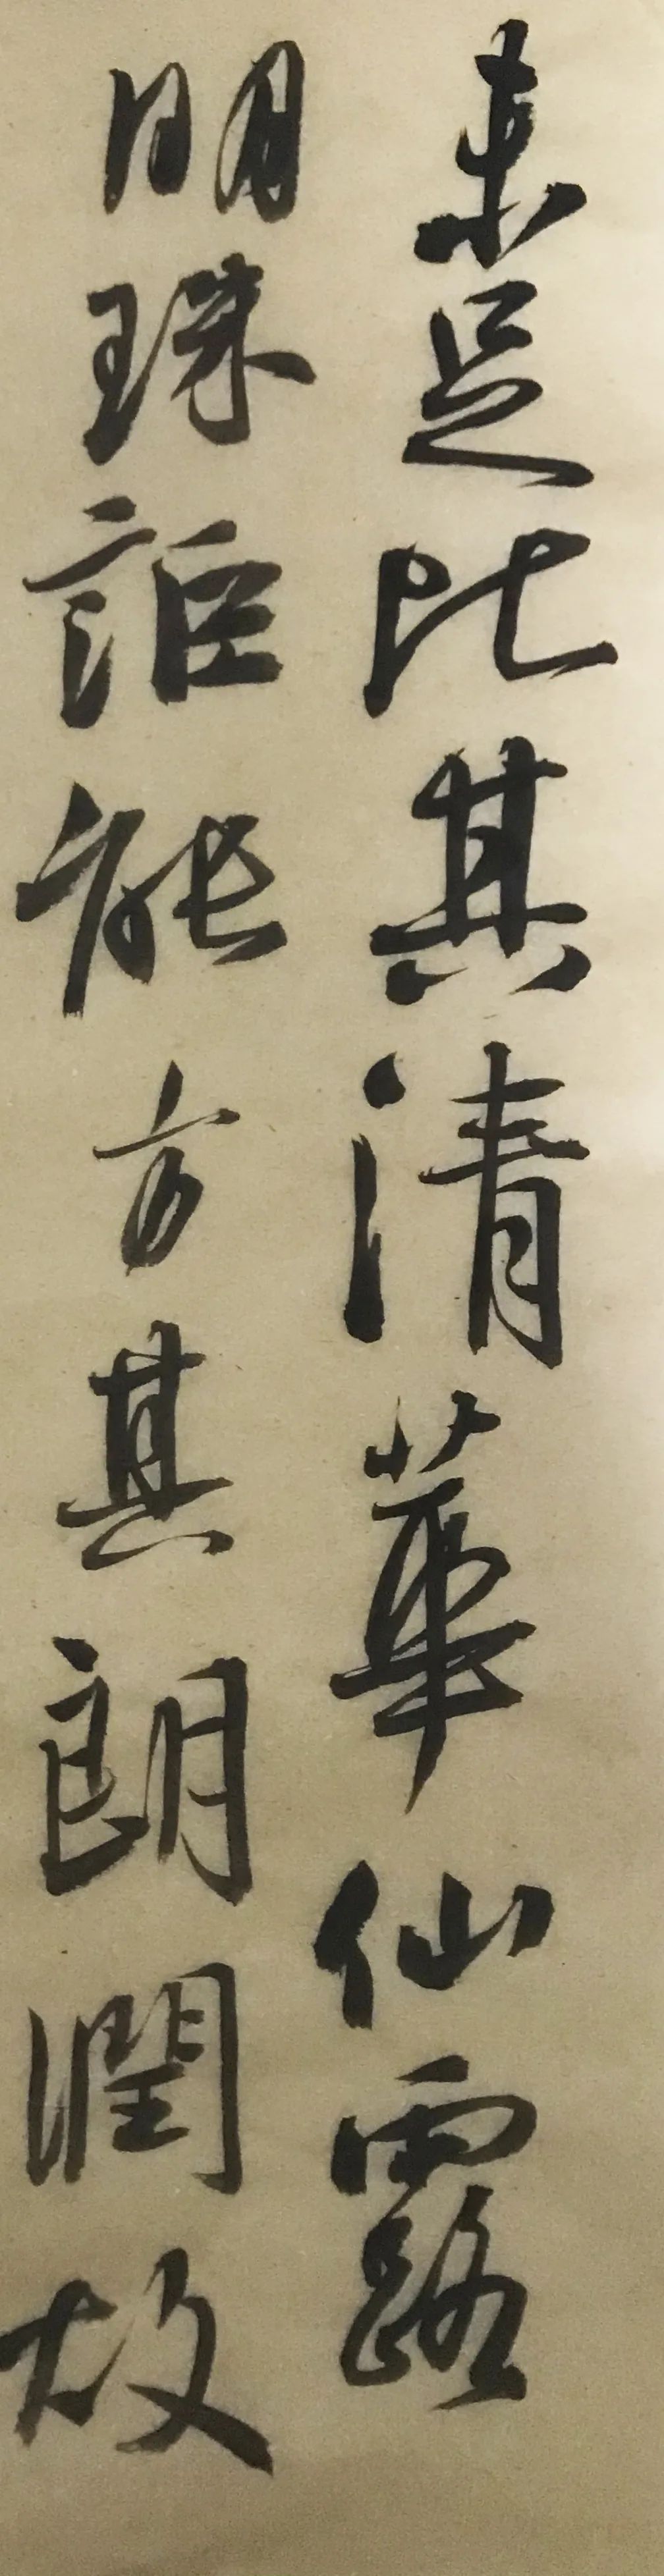 未足比其清華仙露
明珠詎能方其朗潤故